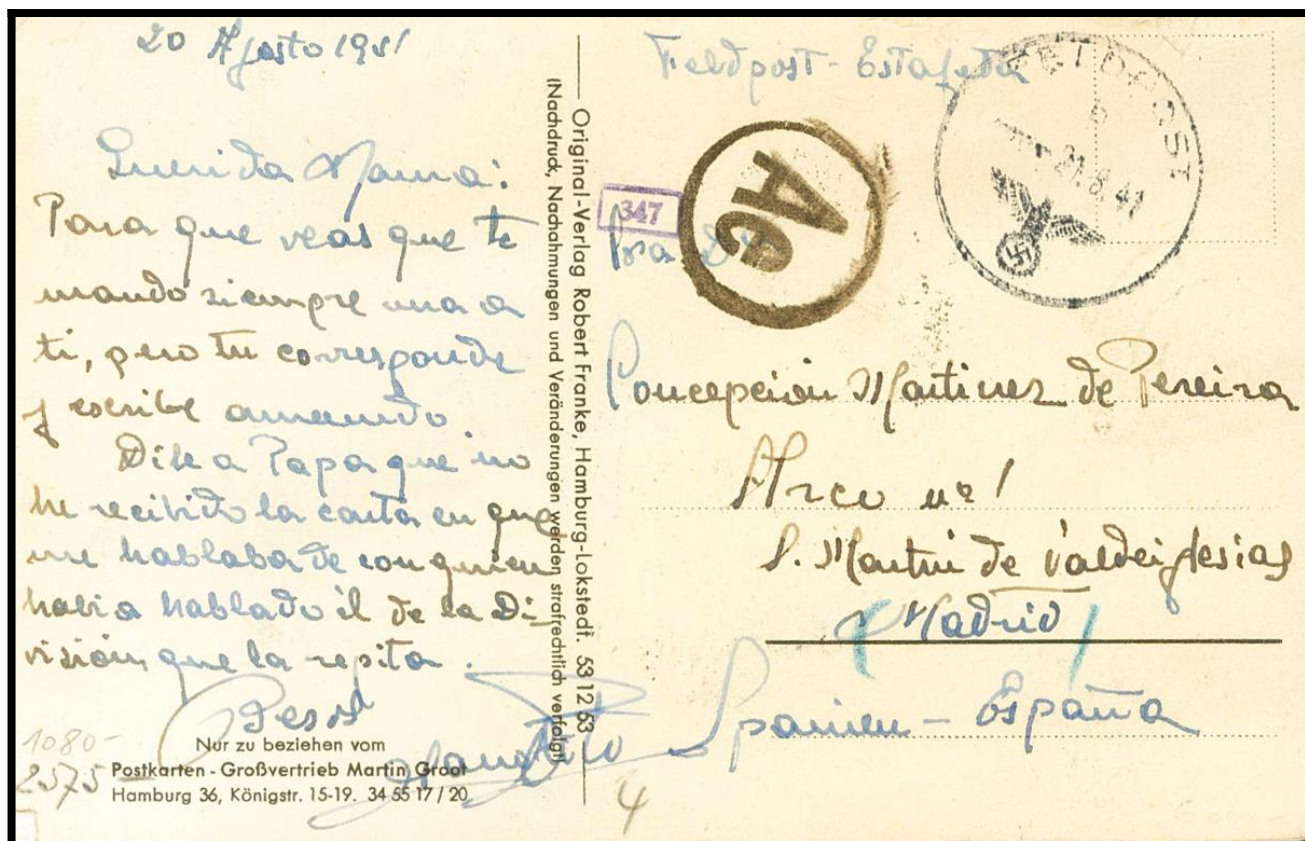 20 Agosto 1941
Querida Mama:
Para que veas que te
mando siempre una a
ti, pero tu corresponde
y escribe amenudo.
Dile a Papa que no
he recibido la carta en que
me hablaba de con quien
habia hablado él de la Di-
visión, que la repita.
Besos
1080-
2575
Nur zu beziehen vom
Postkarten-Großvertrieb Martin Groot
Hamburg 36, Königstr. 15-19. 34 55 17/20
Original-Verlag Robert Franke, Hamburg-Lokstedt. 53 12 53
(Nachdruck, Nachahmungen und Veränderungen werden strafrechtlich verfolgt)
Feldpost - Estafeta
FELDPOST
21.8.41
347
Ac
Concepción Martinez de Pereira
Arco nº 1
S. Martin de Valdeiglesias
Madrid
Spanien - España
4